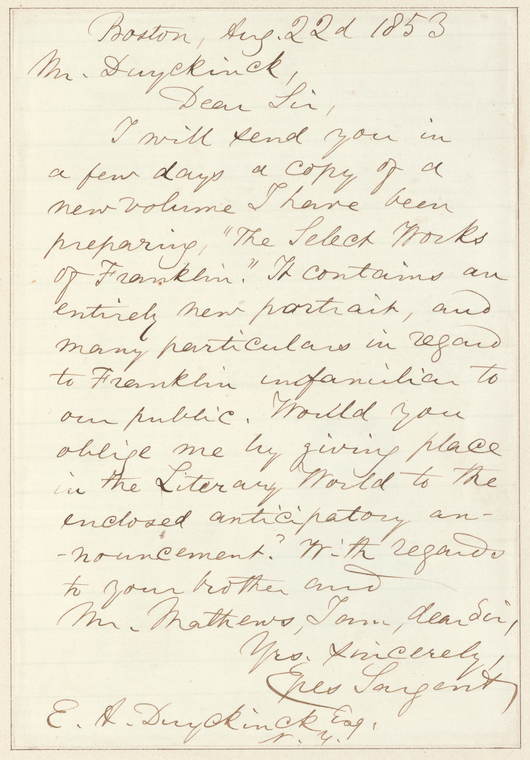 Boston, Aug. 22d 1853
Mr. Duyckinck,
Dear Sir,
I will send you in
a few days a copy of a
new volume I have been
preparing, "The Select Works
of Franklin." It contains an
entirely new portrait, and
many particulars in regard
to Franklin unfamiliar to
our public. Would you
oblige me by giving place
in the Literary World to the
enclosed anticipatory an-
-nouncement? With regards
to your brother and
Mr. Mathews, I am, dear Sir,
Yrs. sincerely,
Epes Sargent
E. A. Duyckinck Esq.
N. Y.